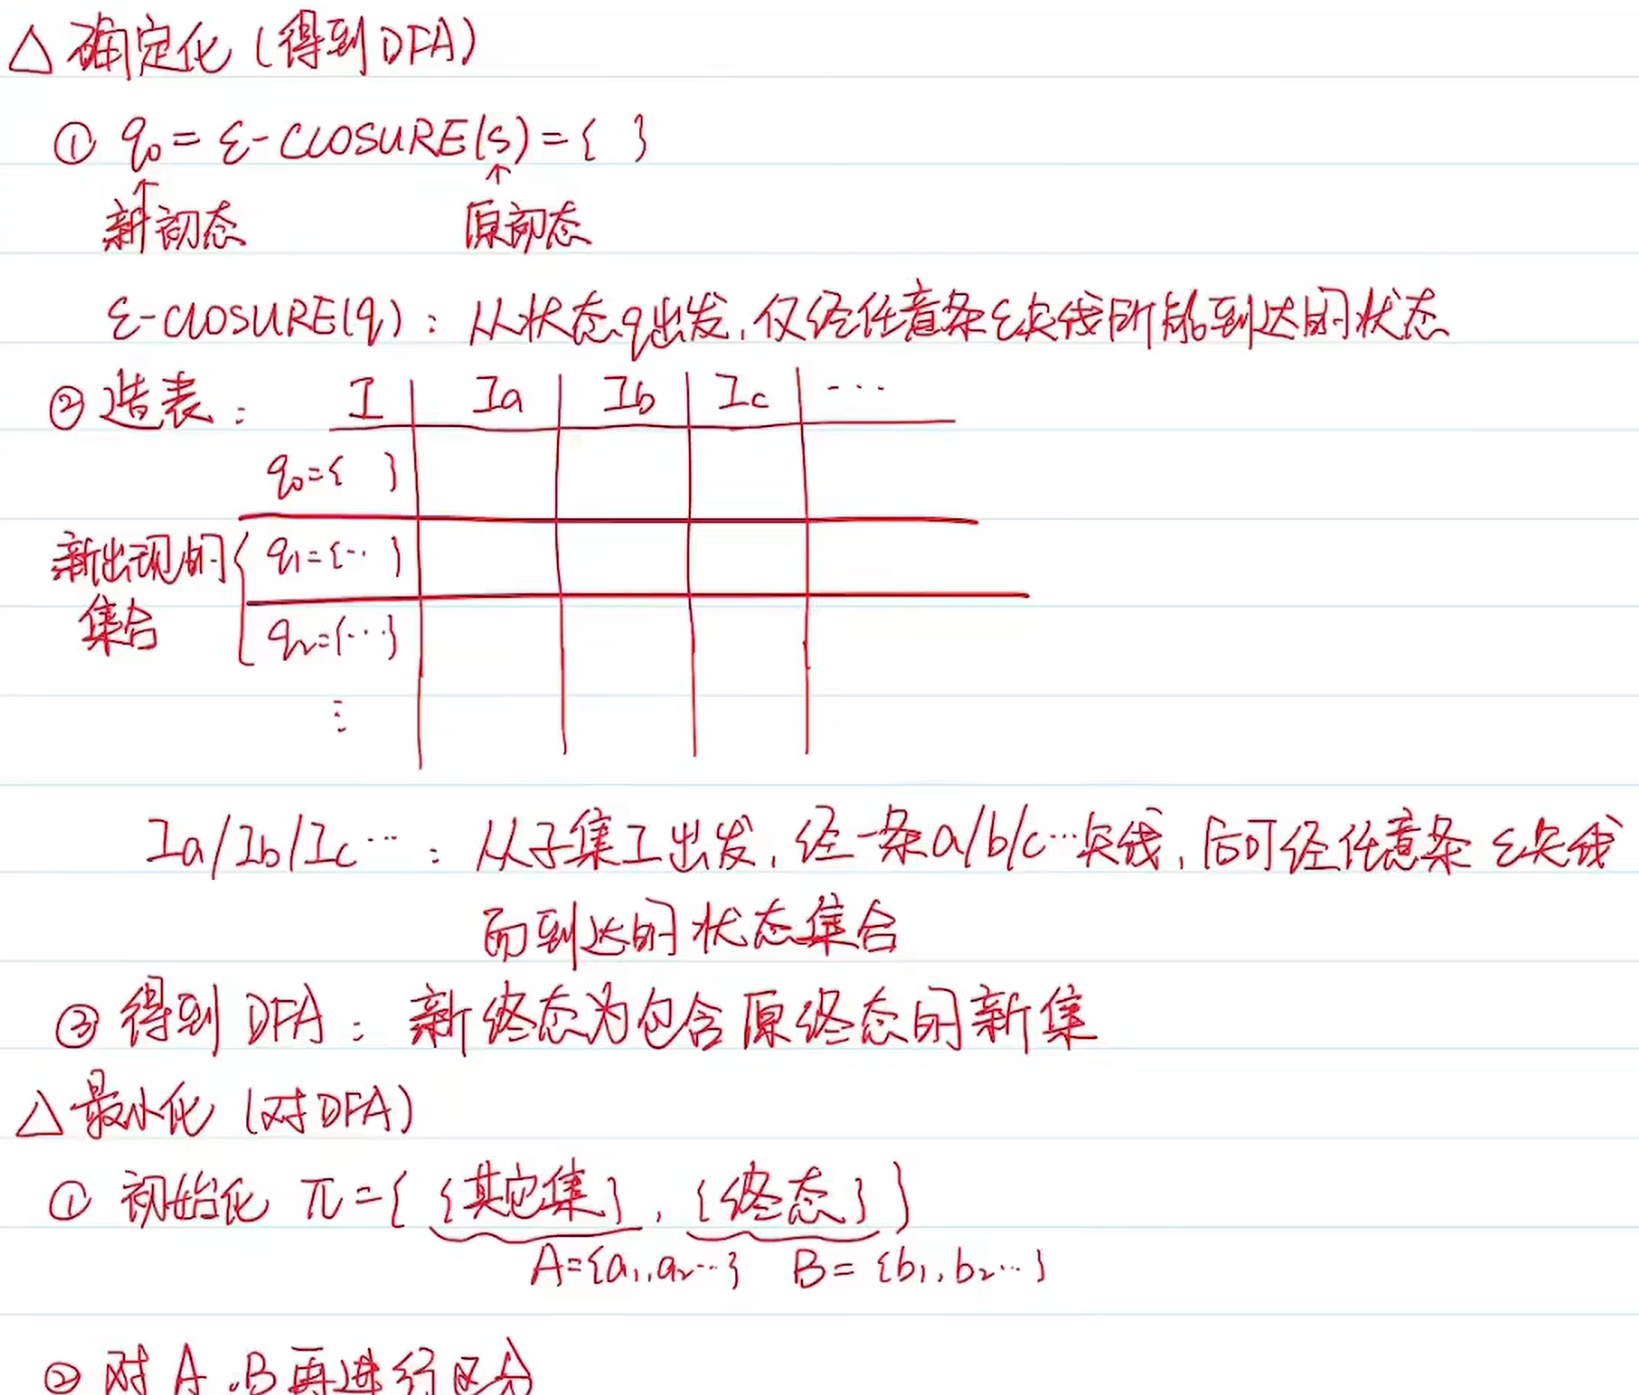 △ 确定化（得到DFA）
① q₀ = ε-CLOSURE(S) = { }
↑ ↑
新初态 原初态
ε-CLOSURE(q)：从状态q出发，仅经任意条ε矢线所能到达的状态
② 造表： I Ia Ib Ic ···
q₀={ }
新出现的 q₁={··}
集合 q₂={···}
⋮
Ia/Ib/Ic···：从子集I出发，经一条a/b/c···矢线，后可经任意条ε矢线
而到达的状态集合
③ 得到DFA：新终态为包含原终态的新集
△ 最小化（对DFA）
① 初始化 π={ {其它集}, {终态} }
A={a₁,a₂···} B={b₁,b₂···}
② 对A,B再进行区分